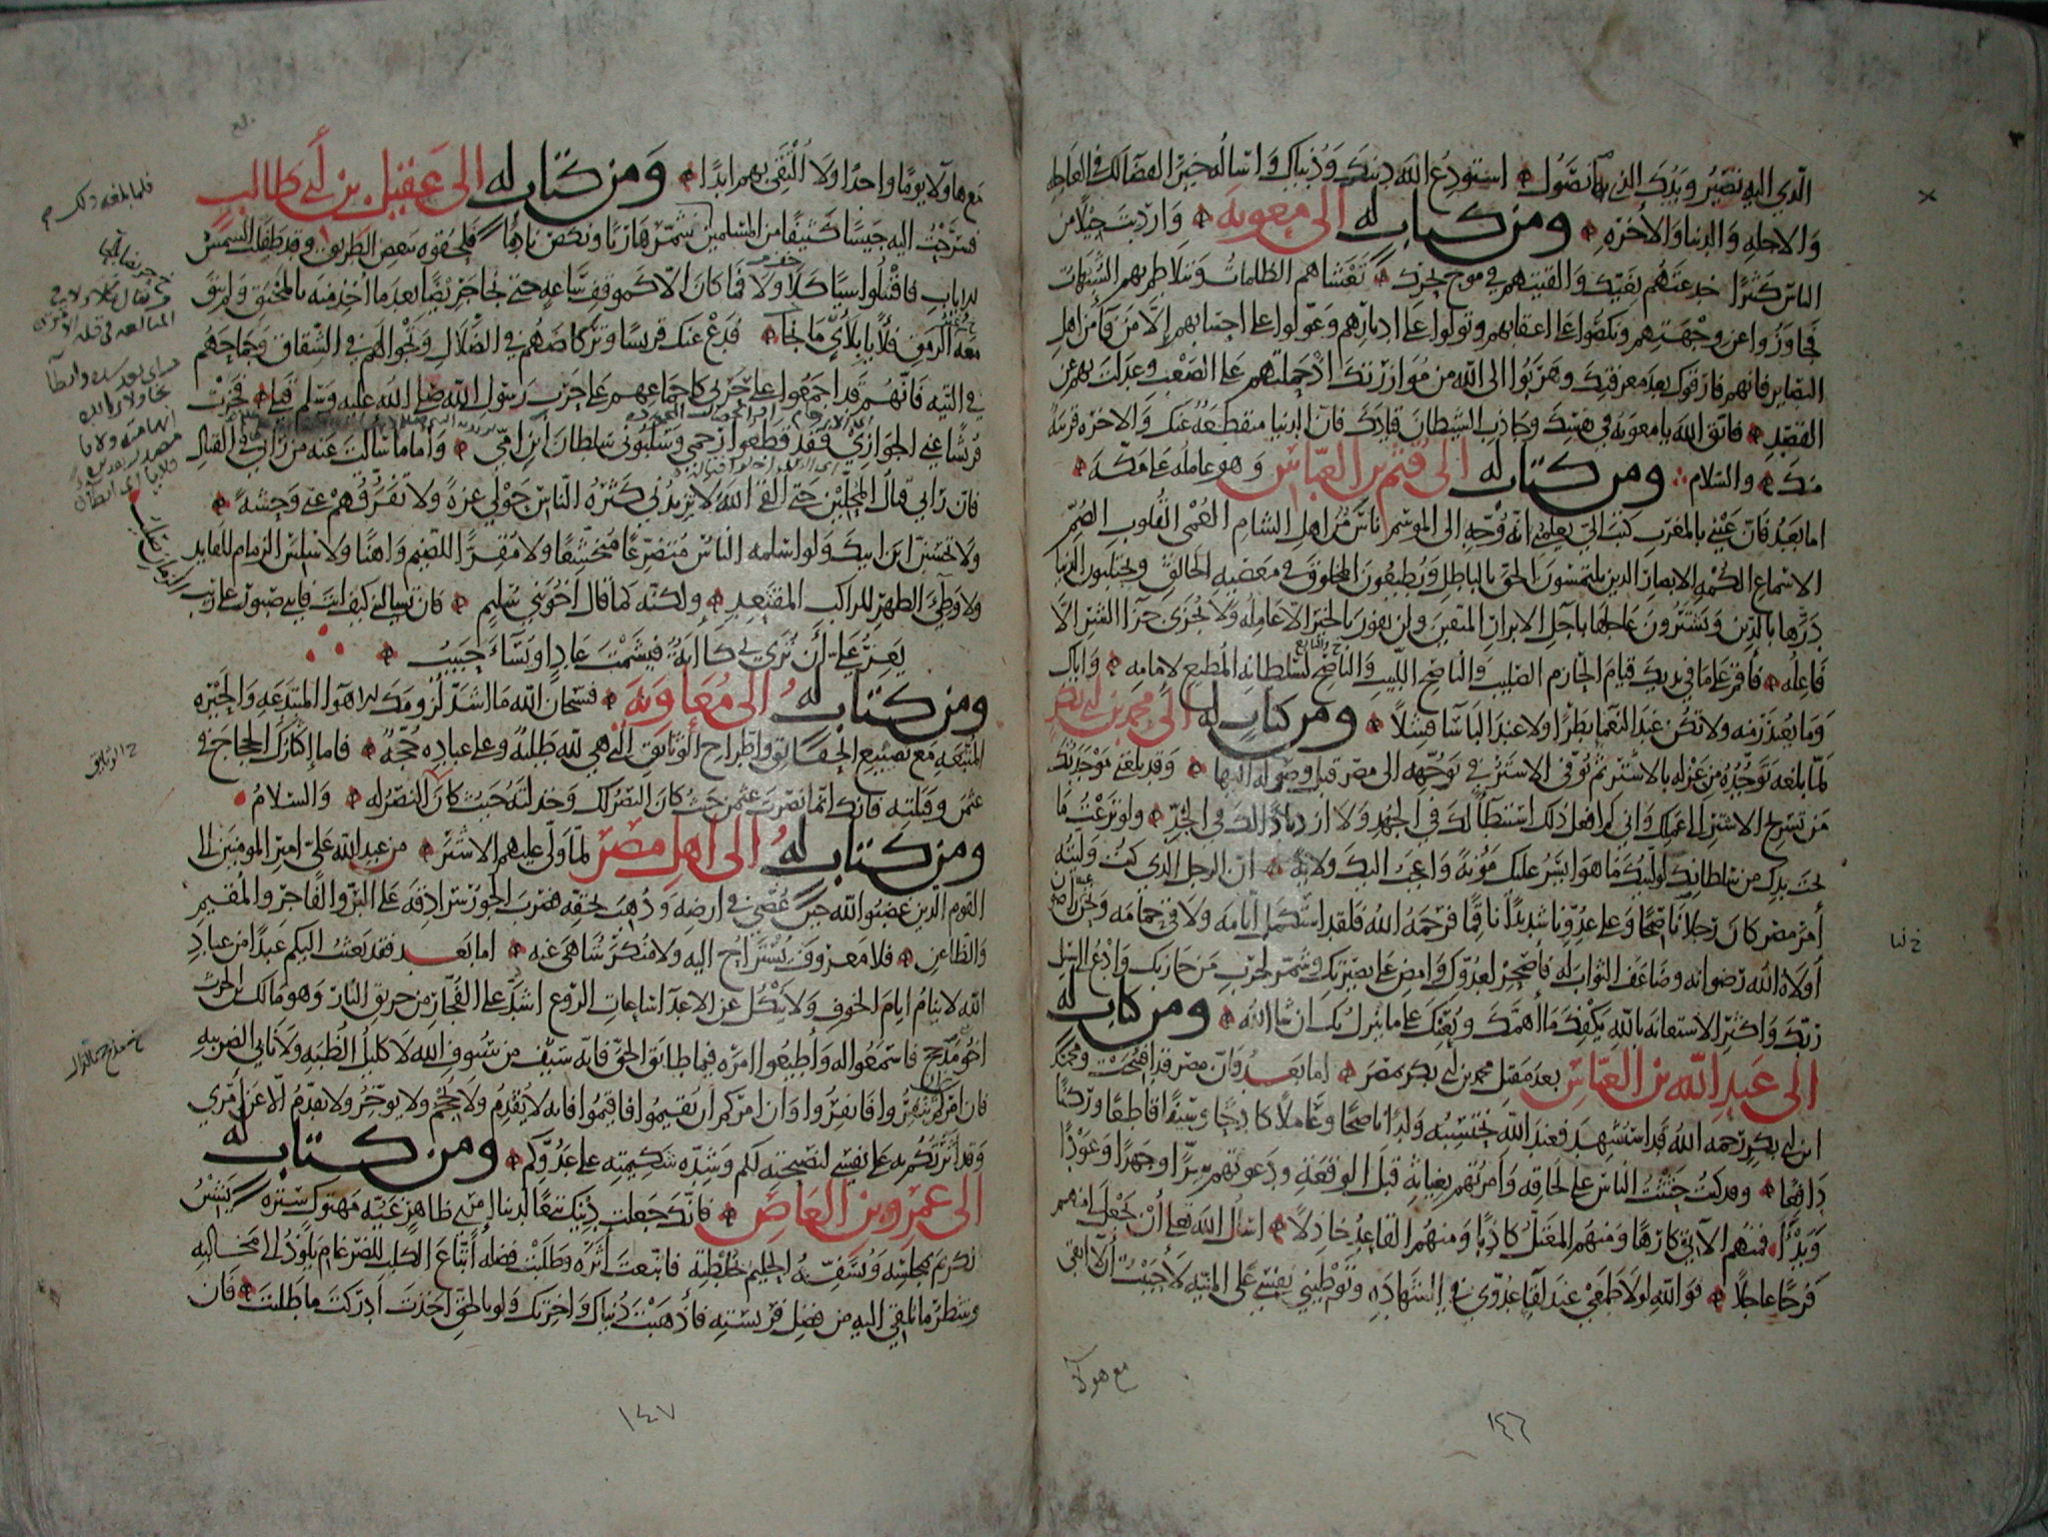 الذي اليه تصير ويدك التي بها تصول استودع الله دينك ودنياك واساله خير القضا لك في العاجله
والاجله والدنيا والاخره ومن كتاب له الى معويه وارديت جيلا من
الناس كثيرا خدعتهم بغيك والقيتهم في موج بحرك تغشاهم الظلمات وتتلاطم بهم الشبهات
فجاوزوا عن وجهتهم ونكصوا على اعقابهم وتولوا على ادبارهم وعولوا على احسابهم الا من فا من اهل
البصاير فانهم فارقوك بعد معرفتك وهربوا الى الله من موازرتك اذ حملتهم على الصعب وعدلت بهم عن
القصد فاتق الله يا معويه في نفسك وجاذب الشيطان قيادك فان الدنيا منقطعه عنك والاخره قريبه
منك والسلام ومن كتاب له الى قثم بن العباس وهو عامله على مكه
اما بعد فان عيني بالمغرب كتب الي يعلمني انه وجه الى الموسم ناس من اهل الشام العمي القلوب الصم
الاسماع الكمه الابصار الذين يلتمسون الحق بالباطل ويطيعون المخلوق في معصيه الخالق ويحتلبون الدنيا
درها بالدين ويشترون عاجلها باجل الابرار المتقين ولن يفوز بالخير الا عامله ولا يجزى جزا الشر الا
فاعله فاقم على ما في يديك قيام الحازم الصليب والناصح اللبيب والناصح لسلطانه المطيع لامامه واياك
وما يعتذر منه ولا تكن عند النعما بطرا ولا عند الباسا فشلا ومن كتاب له الى محمد بن ابي بكر
لما بلغه توجده من عزله بالاشتر ثم توفى الاشتر في توجهه الى مصر قبل وصوله اليها وقد بلغني موجدتك
من تسريح الاشتر الى عملك واني لم افعل ذلك استبطا لك في الجهد ولا ازديادا لك في الجد ولو نزعت ما
تحت يدك من سلطانك لوليتك ما هو ايسر عليك مؤنة واعجب اليك ولاية ان الرجل الذي كنت وليته
امر مصر كان رجلا ناصحا وعلى عدونا شديدا ناقما فرحمه الله فلقد استكمل ايامه ولاقى حمامه ونحن عنه راضون
اولاه الله رضوانه وضاعف الثواب له فاصحر لعدوك وامض على بصيرتك وشمر لحرب من حاربك وادع الى سبيل
ربك واكثر الاستعانه بالله يكفك ما اهمك ويعنك على ما ينزل بك ان شا الله ومن كتاب له
الى عبد الله بن العباس بعد مقتل محمد بن ابي بكر بمصر اما بعد فان مصر قد افتتحت ومحمد
ابن ابي بكر رحمه الله قد استشهد فعند الله نحتسبه ولدا ناصحا وعاملا كادحا وسيفا قاطعا وركنا
دافعا وقد كنت حثثت الناس على لحاقه وامرتهم بغياثه قبل الوقعة ودعوتهم سرا وجهرا وعودا
وبدءا فمنهم الاتي كارها ومنهم المعتل كاذبا ومنهم القاعد خاذلا اسال الله تعالى ان يجعل لي منهم
فرجا عاجلا فوالله لولا طمعي عند لقاء عدوي في الشهاده وتوطيني نفسي على المنيه لاحببت ان لا ابقى
مع هولا
١٤٦
خ لنا
مع هاولا يوما واحدا ولا التقي بهم ابدا ومن كتاب له الى عقيل بن ابي طالب
فسرحت اليه جيشا كثيفا من المسلمين شمر هاربا ونكص نادما فلحقوه ببعض الطريق وقد طفلت الشمس
للاياب فاقتتلوا شيا كلا ولا فما كان الا كموقف ساعه حتى نجا جريضا بعد ما اخذ منه بالمخنق ولم يبق
معه غير الرمق فلايا بلاي ما نجا فدع عنك قريشا وتركاضهم في الضلال وتجوالهم في الشقاق وجماحهم
في التيه فانهم قد اجمعوا على حربي كاجماعهم على حرب رسول الله صلى الله عليه وسلم قبلي فجزت
قريشا عني الجوازي فقد قطعوا رحمي وسلبوني سلطان ابن امي واما ما سالت عنه من رايي في القتال
فان رايي قتال المحلين حتى القى الله لا يزيدني كثرة الناس حولي عزة ولا تفرقهم عني وحشة
ولا تحسبن ابن ابيك ولو اسلمه الناس متضرعا متخشعا ولا مقرا للضيم واهنا ولا سلس الزمام للقايد
ولا وطئ الظهر للراكب المقتعد ولكنه كما قال اخو بني سليم فان تساليني كيف انت فانني صبور على ريب الزمان صليب
يعز علي ان ترى بي كابة فيشمت عاد او يساء حبيب
ومن كتاب له الى معاوية فسبحان الله ما اشد لزومك للاهوا المبتدعه والحيره
المتبعه مع تضييع الحقايق واطراح الوثايق التي هي لله طلبة وعلى عباده حجة فاما اكثارك الحجاج في
عثمن وقتلته فانك انما نصرت عثمن حيث كان النصر لك وخذلته حيث كان النصر له والسلام
ومن كتاب له الى اهل مصر لما ولى عليهم الاشتر من عبد الله علي امير المومنين الى
القوم الذين غضبوا لله حين عصي في ارضه وذهب بحقه فضرب الجور سرادقه على البر والفاجر والمقيم
والظاعن فلا معروف يستراح اليه ولا منكر يتناهى عنه اما بعد فقد بعثت اليكم عبدا من عباد
الله لا ينام ايام الخوف ولا ينكل عن الاعدا ساعات الروع اشد على الفجار من حريق النار وهو مالك بن الحرث
اخو مذحج فاسمعوا له واطيعوا امره فيما طابق الحق فانه سيف من سيوف الله لا كليل الظبه ولا نابي الضريبه
فان امركم ان تنفروا فانفروا وان امركم ان تقيموا فاقيموا فانه لا يقدم ولا يحجم ولا يوخر ولا يقدم الا عن امري
وقد اثرتكم به على نفسي لنصيحته لكم وشده شكيمته على عدوكم ومن كتاب له
الى عمرو بن العاص فانك جعلت دينك تبعا لدنيا امرئ ظاهر غيه مهتوك ستره يشين
الكريم بمجلسه ويسفه الحليم بخلطته فاتبعت اثره وطلبت فضله اتباع الكلب للضرغام يلوذ الى مخالبه
وينتظر ما يلقي اليه من فضل فريسته فاذهبت دنياك واخرتك ولو بالحق اخذت ادركت ما طلبت فان
١٤٧
فلما بلغه ذلك
خ الوثايق